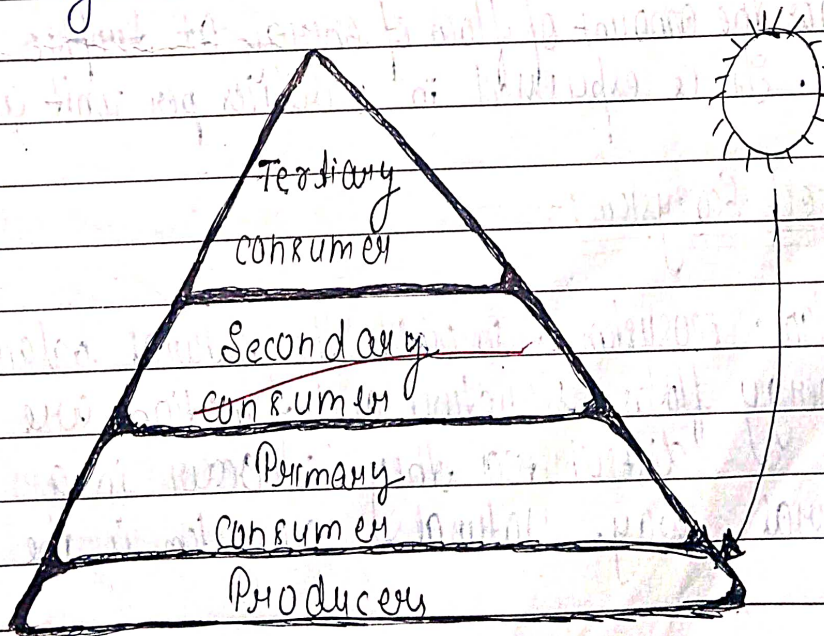 Tertiary
consumer
Secondary
consumer
Primary
consumer
Producers